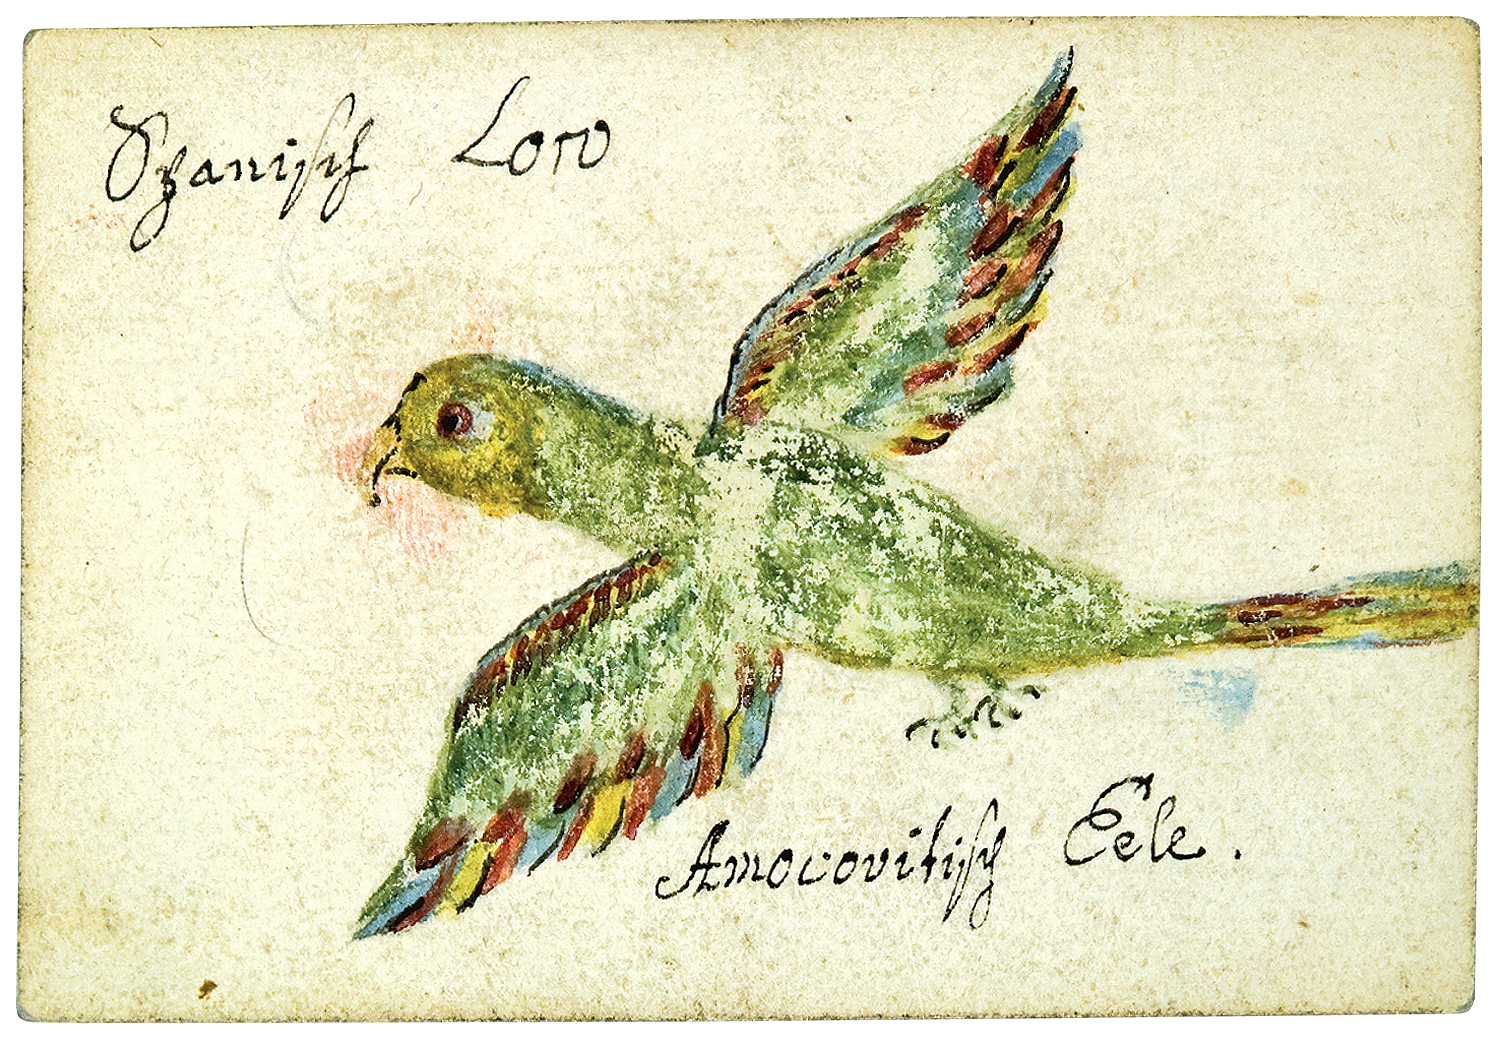 Spanisch Loro
Amocovitisch Eele.